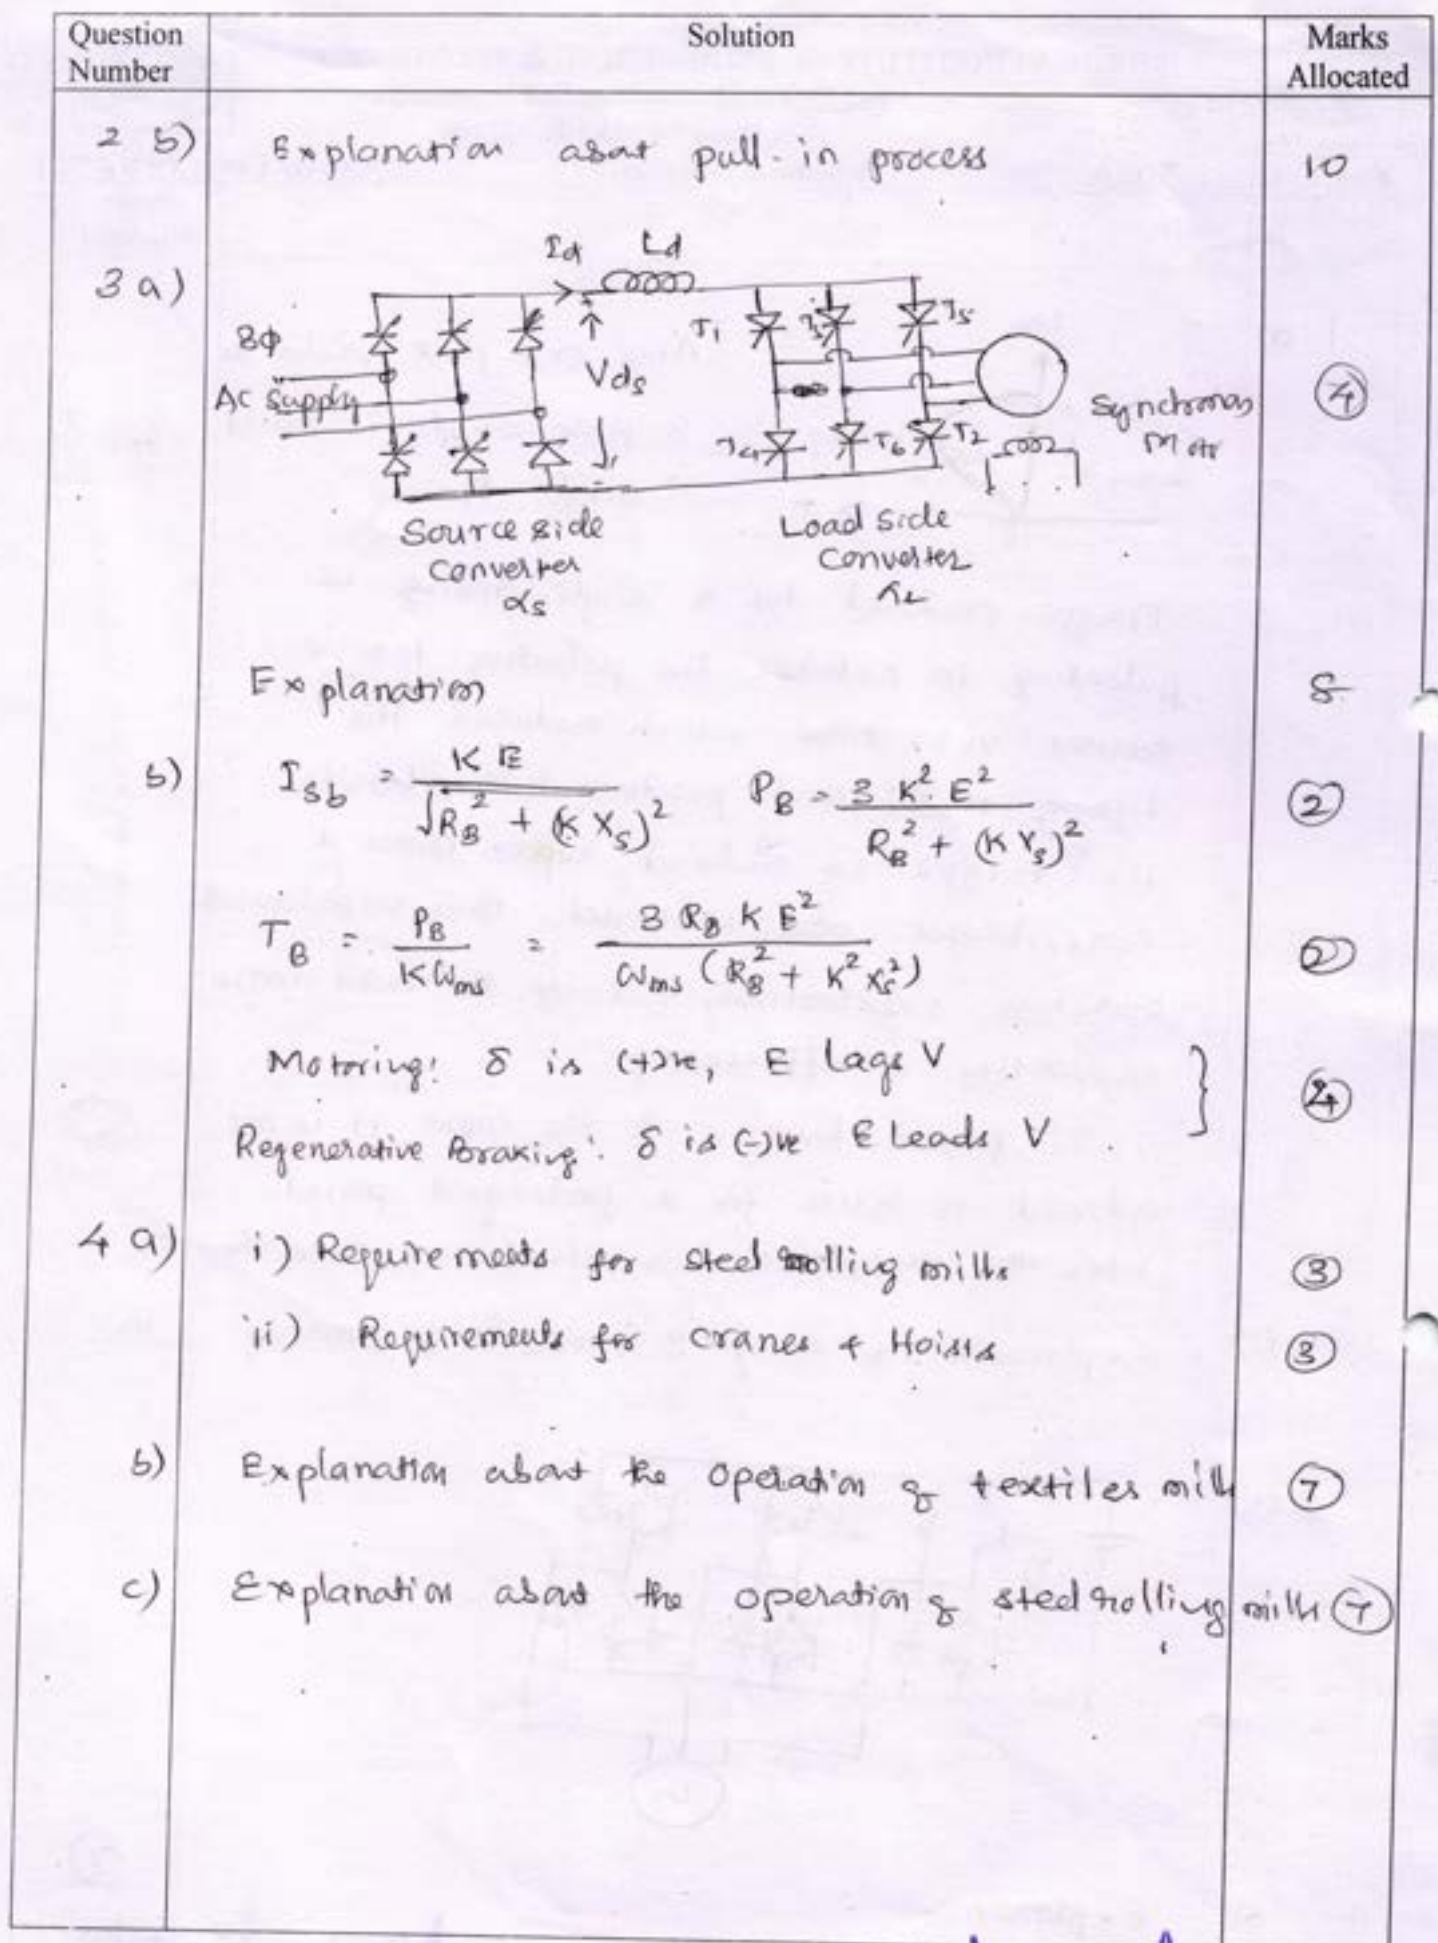 Question Number
Solution
Marks Allocated
2 b) Explanation about pull-in process 10
3 a)
Id Ld
3Φ
AC Supply
Vds
T1 T3 T5
T4 T6 T2
Synchronous Motor
4
Source side Converter αs
Load side Converter
Explanation 5
b) I_sb = K E / √(R_B² + (K X_s)²) P_B = 3 K² E² / (R_B² + (K X_s)²) 2
T_B = P_B / (K ω_ms) = 3 R_B K E² / (ω_ms (R_B² + K² X_s²)) 2
Motoring: δ is (+)ve, E lags V
Regenerative Braking: δ is (-)ve E Leads V
4 a) i) Requirements for steel rolling mills 3
ii) Requirements for cranes & Hoists 3
b) Explanation about the operation of textiles mill 7
c) Explanation about the operation of steel rolling mills 7